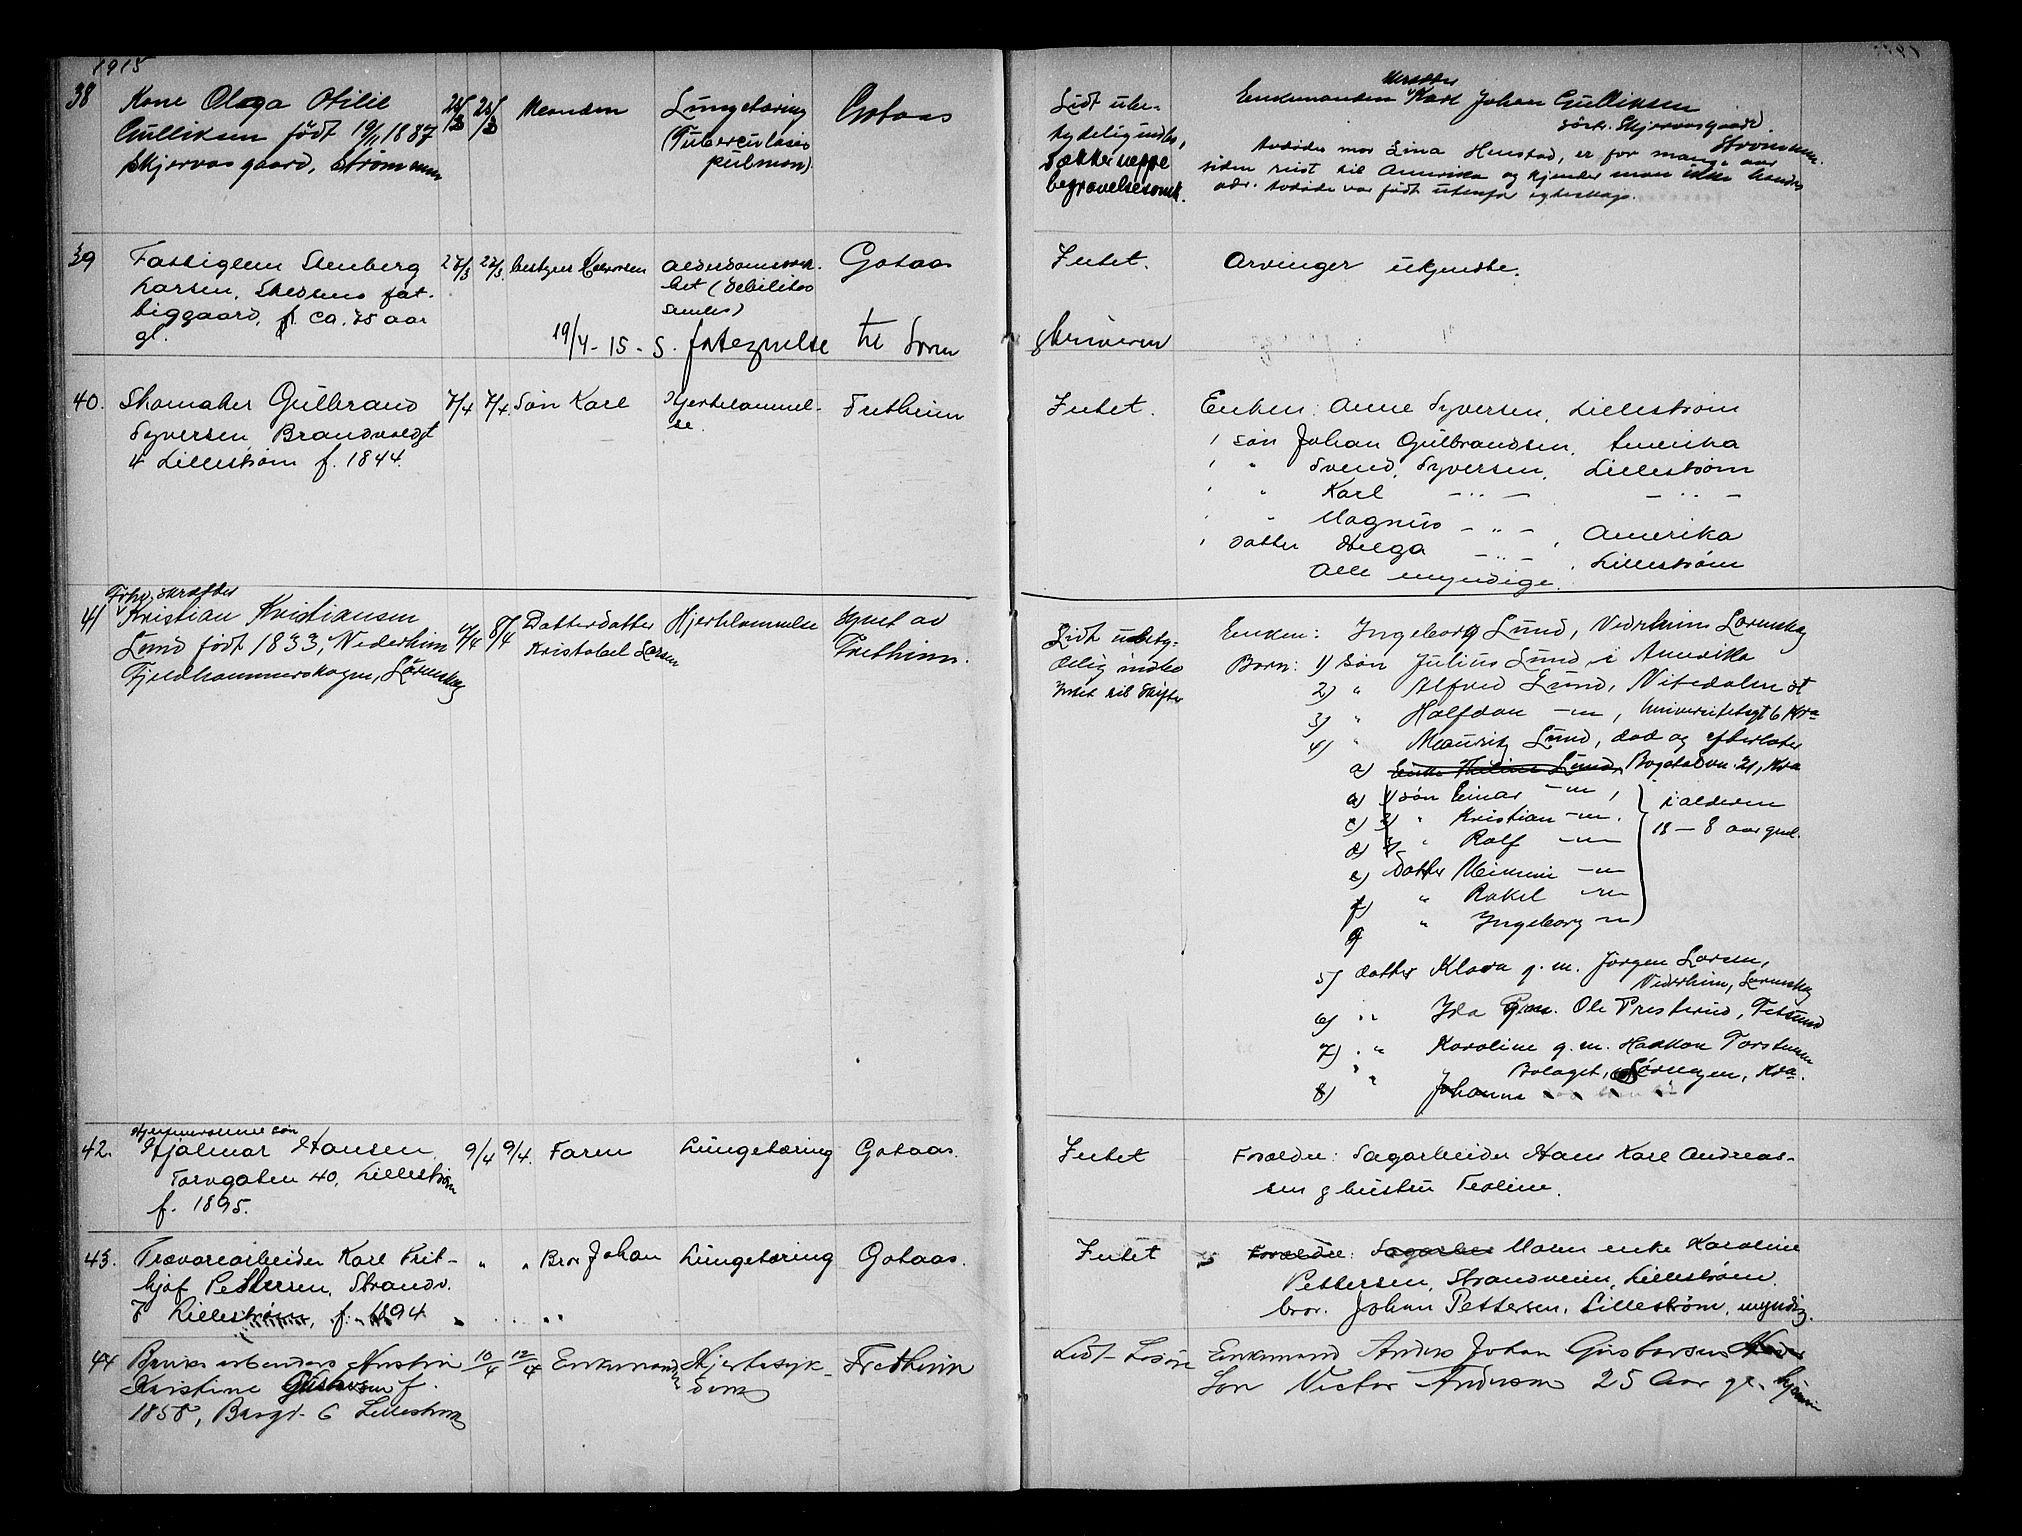 1915
38 Kone Olaga Otilie
Gulliksen født 19/1 1887
Skjervas gaard, Strømmen
Manden
Lungetæring
(Tuberculosis
pulmon)
Gotaas
Lidt ube-
tydelig indbo,
dækker neppe
begravelsesomk.
Enkemanden Karl Johan Gulliksen
Skjervasgaard
Strømmen.
Avdødes mor Lina Henstad, er for mange aar
siden reist til Amerika og kjender man ikke hendes
adr. Avdøde var født utenfor egteskap.
39 Fattiglem Stenberg
Larsen, Skedsmo fat-
tiggaard, f. ca. 75 aar
gl.
27/3 27/3 bestyrer Halvorsen
Alderdomssvak-
het (Debilitas
senilis)
Gotaas
19/4 - 15 - S. fategnelse til Soren
Intet.
Arvinger ukjendte.
skriveren
40. Skomaker Gulbrand
Syversen, Brandvoldgt
4 Lillestrøm f. 1844.
7/4 7/4 Søn Karl
Hjertelammel-
se.
Fretheim
Intet.
Enken: Anne Syversen, Lillestrøm
1 søn Johan Gulbrandsen, Amerika
1 " Svend Syversen, Lillestrøm
" Karl — " — — " —
" Magnus — " — , Amerika
1 datter Helga — " — , Lillestrøm
Alle myndige.
Forhv. skrædder
41 Kristian Kristiansen
Lund født 1833, Nederheim
Fjeldhammerskogen, Lørenskog
6/4 8/4 Datterdatter
Kristobel Larsen
Hjertelammelse
Synet av
Fretheim.
Lidt ubety-
delig indbo
Intet til Skifte
Enken: Ingeborg Lund, Nederheim Lørenskog
Barn: 1) søn Julius Lund i Amerika
2) " Alfred Lund, Nitedalen st
3) " Halfdan —"—, Universitetsgt 6 Kra
4) " Mauritz Lund, død og efterlater
a) Enke Lund, Bogstadvn. 21, Kra
a) 1) søn Einar —"—,
c) 2) " Kristian —"—.
d) 3) " Rolf —"—
i alderen
18 — 8 aar gml.
e) Datter Mimmi —"—
f) " Rakel —"—
g " Ingeborg —"—
5) datter Klara g. m. Jørgen Larsen,
Nederheim, Lørenskog
6) " Ida g.m. Ole Presterud, Fetsund
7) " Karoline g. m. Haakon Torstensen
Bolaget, Sørengen, Kra.
8) " Johanne
42. Hjemmeværende søn
Hjalmar Hansen,
Torvgaten 40, Lillestrøm
f. 1895.
9/4 9/4. Faren
Lungetæring
Gotaas.
Intet
Forældre: Sagarbeider Hans Karl Andreas-
sen g hustru Teoline.
43. Trævarearbeider Karl Frit-
hjof Pettersen, Strandv.
7 Lillestrøm, f. 1894
" " Bror Johan
Lungetæring
Gotaas.
Intet
Forældre: Sagarbei Moren enke Karoline
Pettersen, Strandveien, Lillestrøm.
bror. Johan Pettersen, Lillestrøm, myndig.
44 Bruksarbeiders Hustru
Kristine Gustavsen f.
1858, Brogt. 6 Lillestrøm
10/4 12/4 Enkemanden
Hjertesyk-
dom
Fretheim
Lidt Løsøre
Enkemand Anders Johan Gustavsen
Søn Victor Andersen 25 Aar gl.